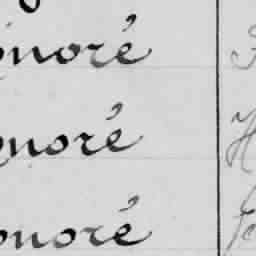 onoré
onoré
onoré